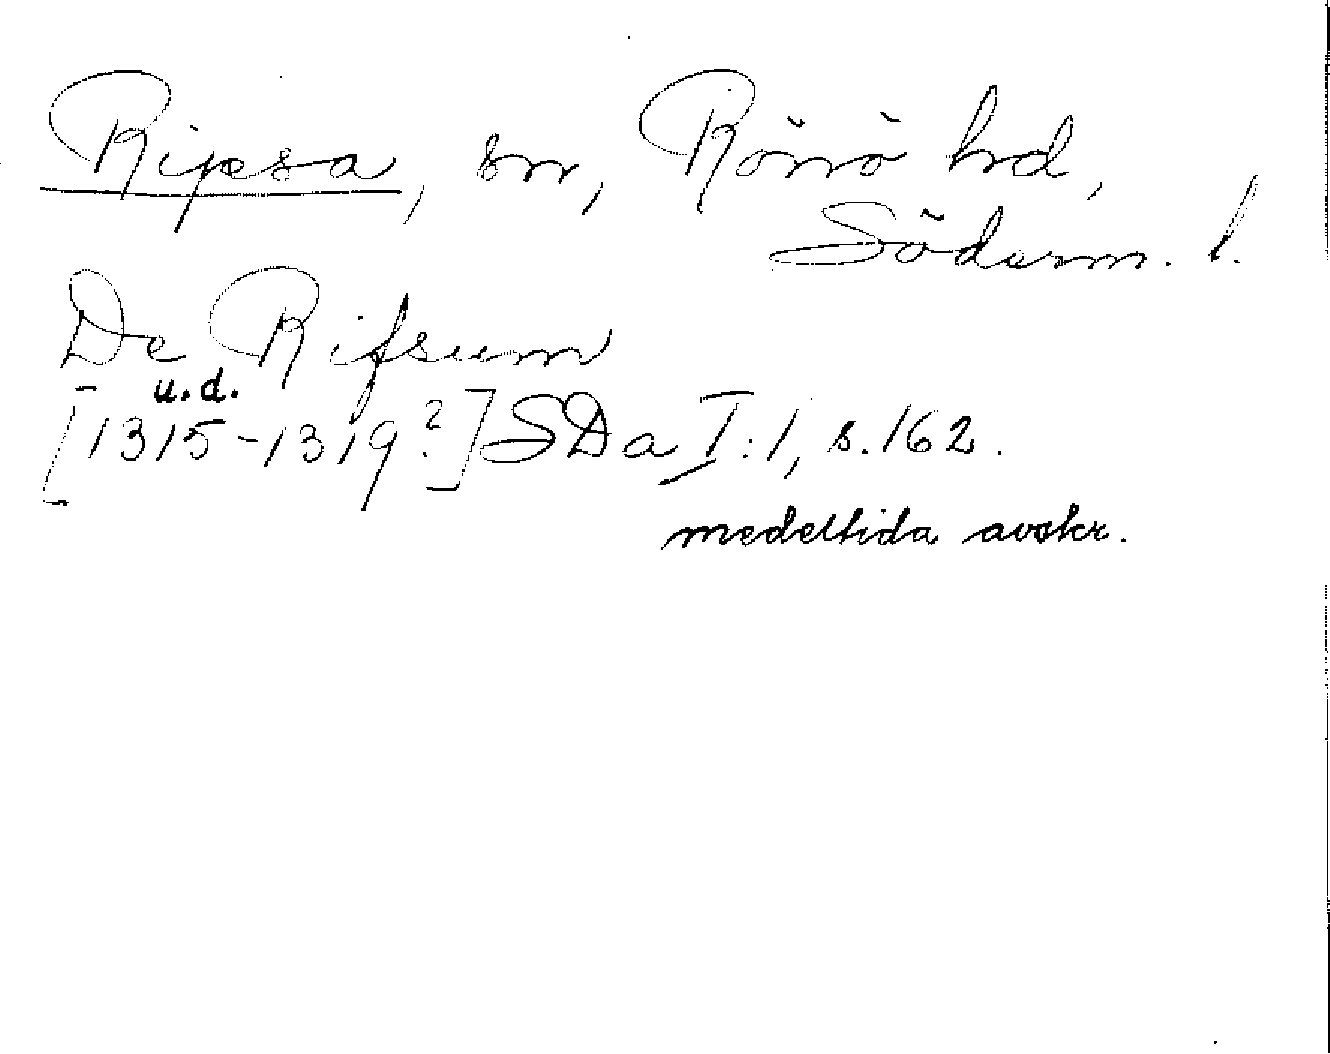 Ripsa, sn, Rönö hd,
Söderm. l.
De Rifsum
u.d.
[1315-1319?] SDa I:1, s.162.
medeltida avskr.